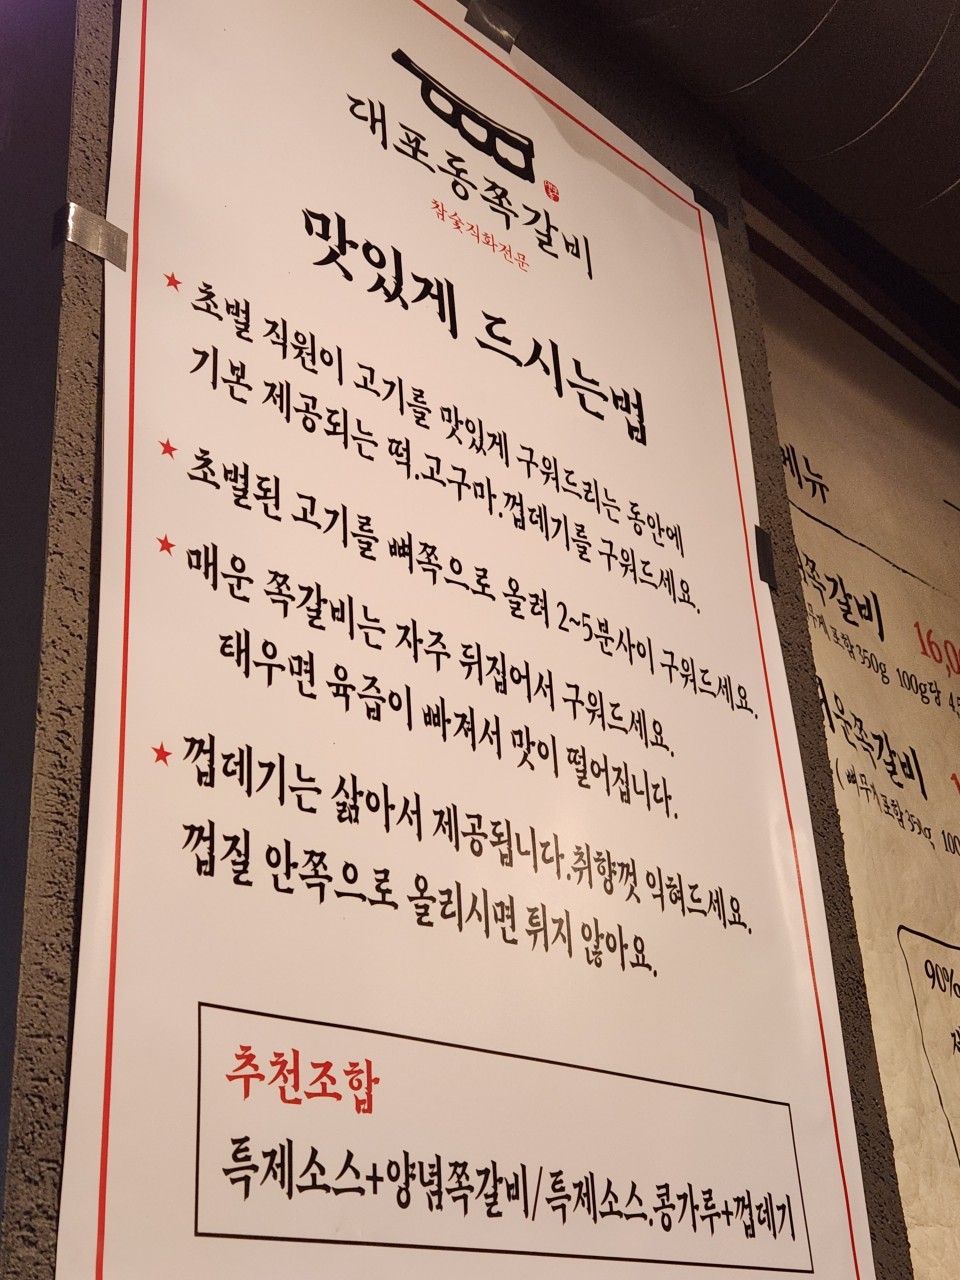 대포동쪽갈비
참숯직화전문
맛있게 드시는법
★ 초벌 직원이 고기를 맛있게 구워드리는 동안에
기본 제공되는 떡.고구마.껍데기를 구워드세요.
★ 초벌된 고기를 뼈쪽으로 올려 2~5분사이 구워드세요.
★ 매운 쪽갈비는 자주 뒤집어서 구워드세요.
태우면 육즙이 빠져서 맛이 떨어집니다.
★ 껍데기는 삶아서 제공됩니다.취향껏 익혀드세요.
껍질 안쪽으로 올리시면 튀지 않아요.
추천조합
특제소스+양념쪽갈비/특제소스.콩가루+껍데기
메뉴
쪽갈비 16,0
포함 350g 100g당 4,5
운쪽갈비
(뼈무게 포함 350g, 100
90%